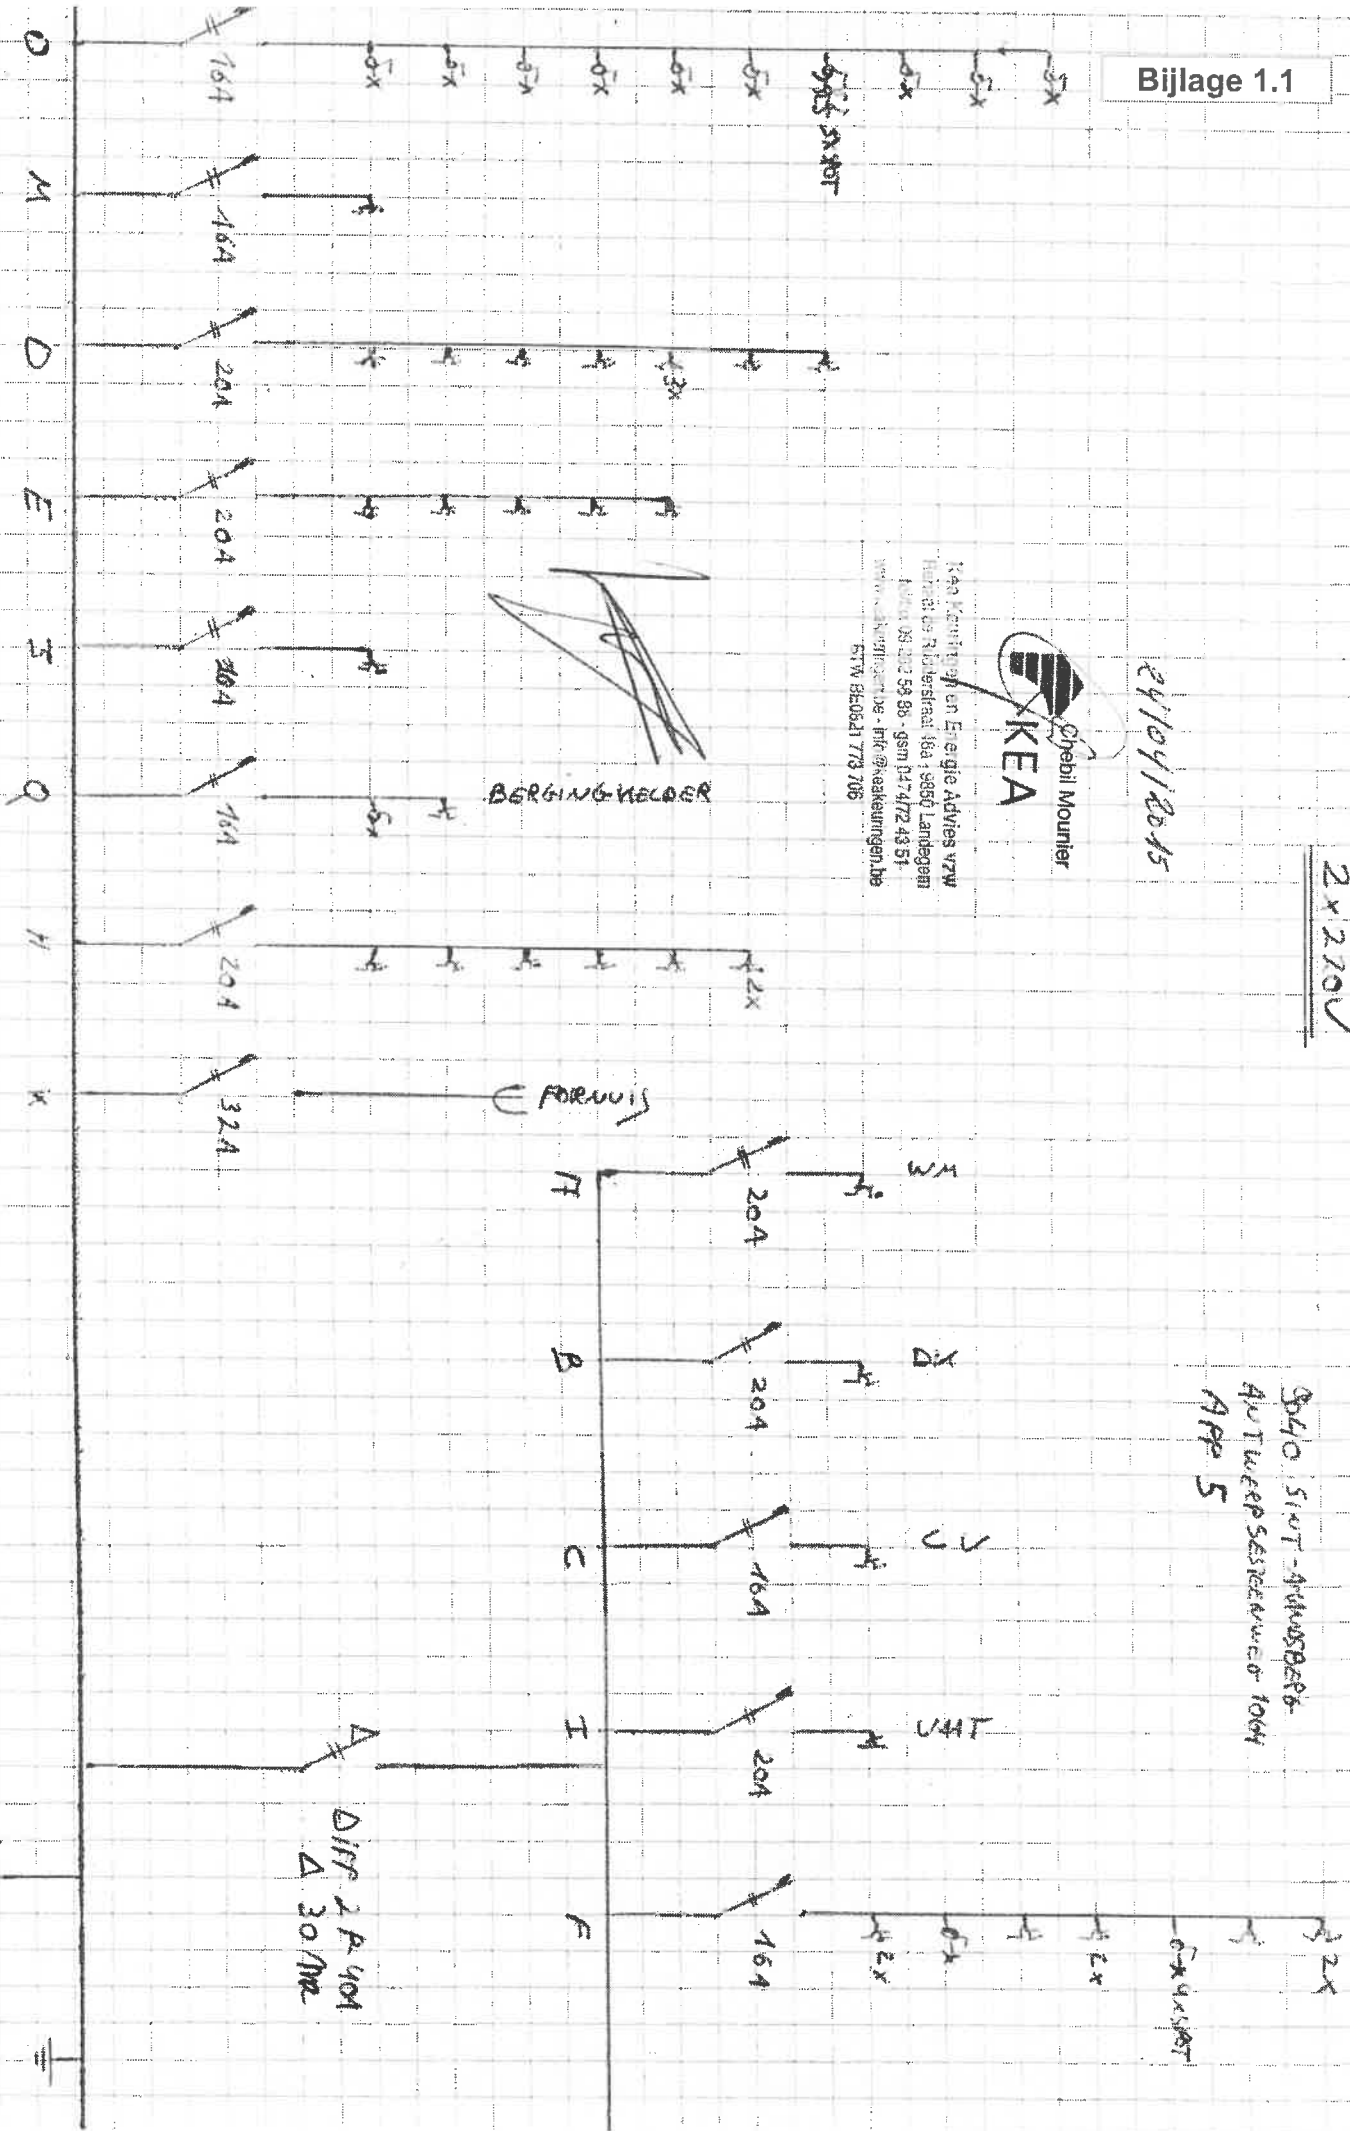 Bijlage 1.1
2x220V
24/04/2015
Chebil Mounier
KEA
Kea Keuringen en Energie Advies vzw
9850 Landegem
58 88 - gsm 0474/72 43 51
info@keakeuringen.be
BTW BE0521 773 706
9040 SINT-AMANDSBERG
ANTWERPSESTEENWEG 1064
APP 5
O
16A
x
x
x
x
x
x
5x SPOT
x
x
x
M
16A
D
20A
3x
E
20A
J
20A
Q
16A
x
BERGING KELDER
H
20A
2x
K
32A
FORNUIS
A
20A
WM
B
20A
DK
C
16A
CV
I
20A
F
16A
2x
x
2x
x 4xSPOT
2x
Δ
DIFF 2P 40A
Δ 30MA